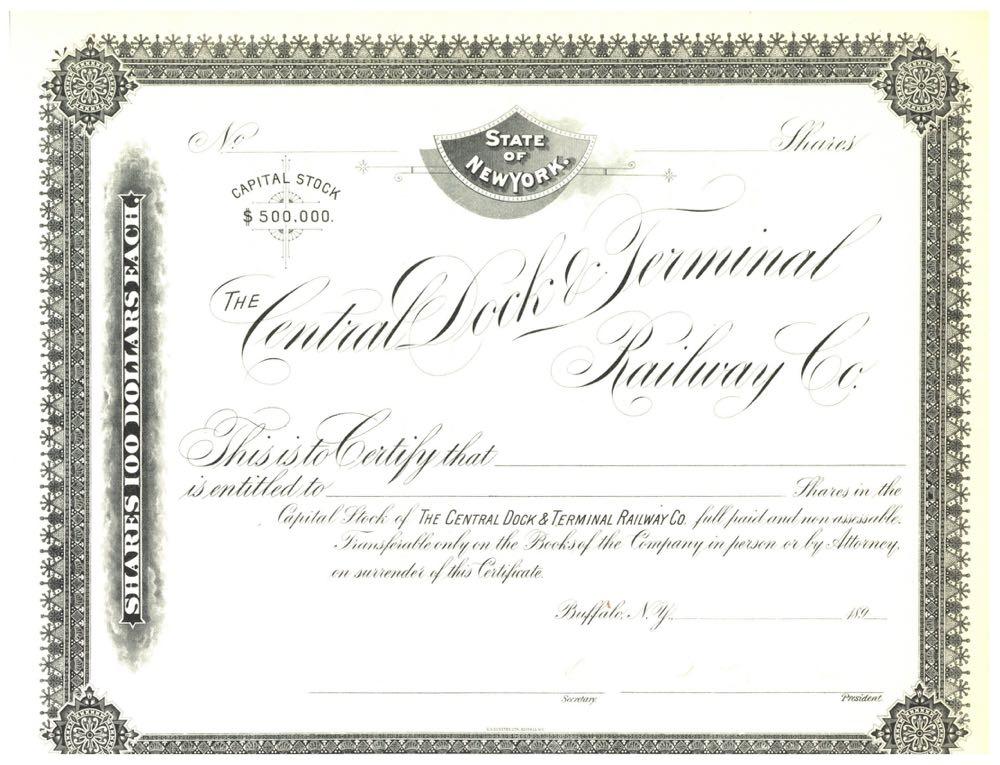 No
STATE
OF
NEW YORK.
Shares
CAPITAL STOCK
$500,000.
SHARES 100 DOLLARS EACH.
THE
Central Dock & Terminal
Railway Co.
This is to Certify that
is entitled to Shares in the
Capital Stock of THE CENTRAL DOCK & TERMINAL RAILWAY CO. full paid and non assessable.
Transferable only on the Books of the Company in person or by Attorney,
on surrender of this Certificate.
Buffalo, N.Y., 189
Secretary. President.